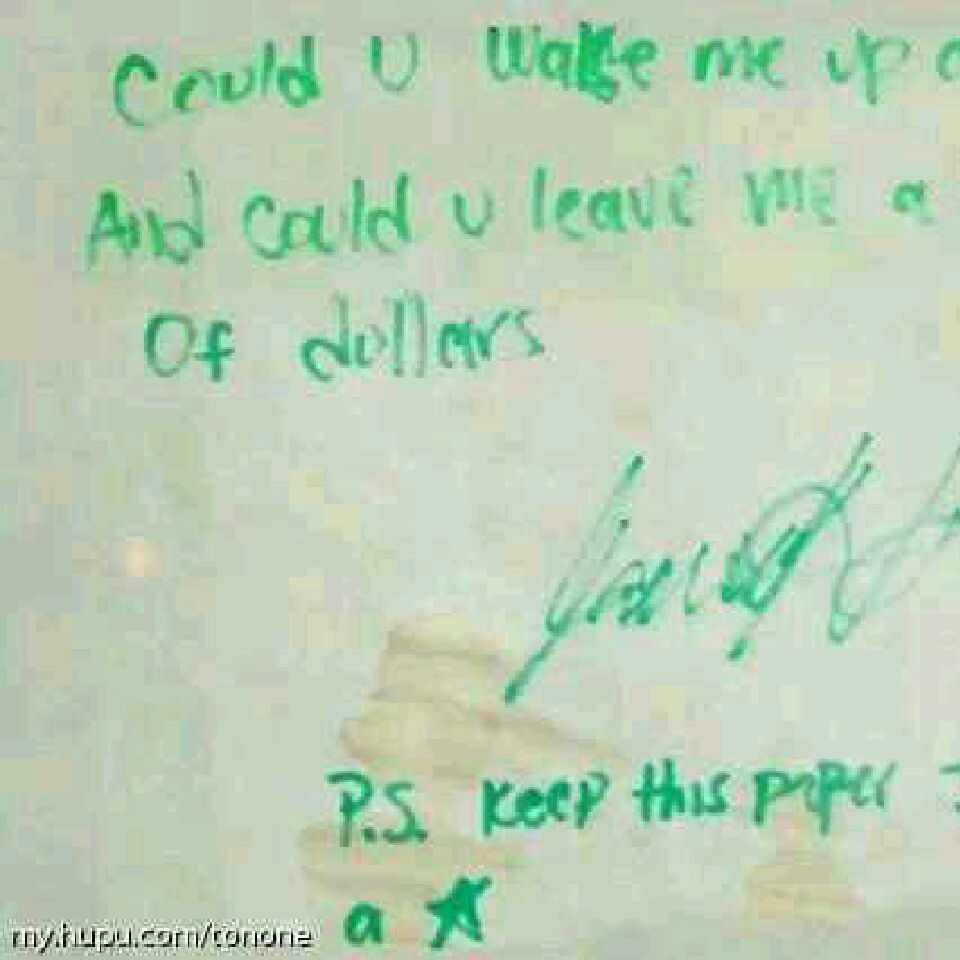 Could U wake me up
And Could u leave me a
Of dollars
P.S. Keep this paper
a
my.hupu.com/tonone